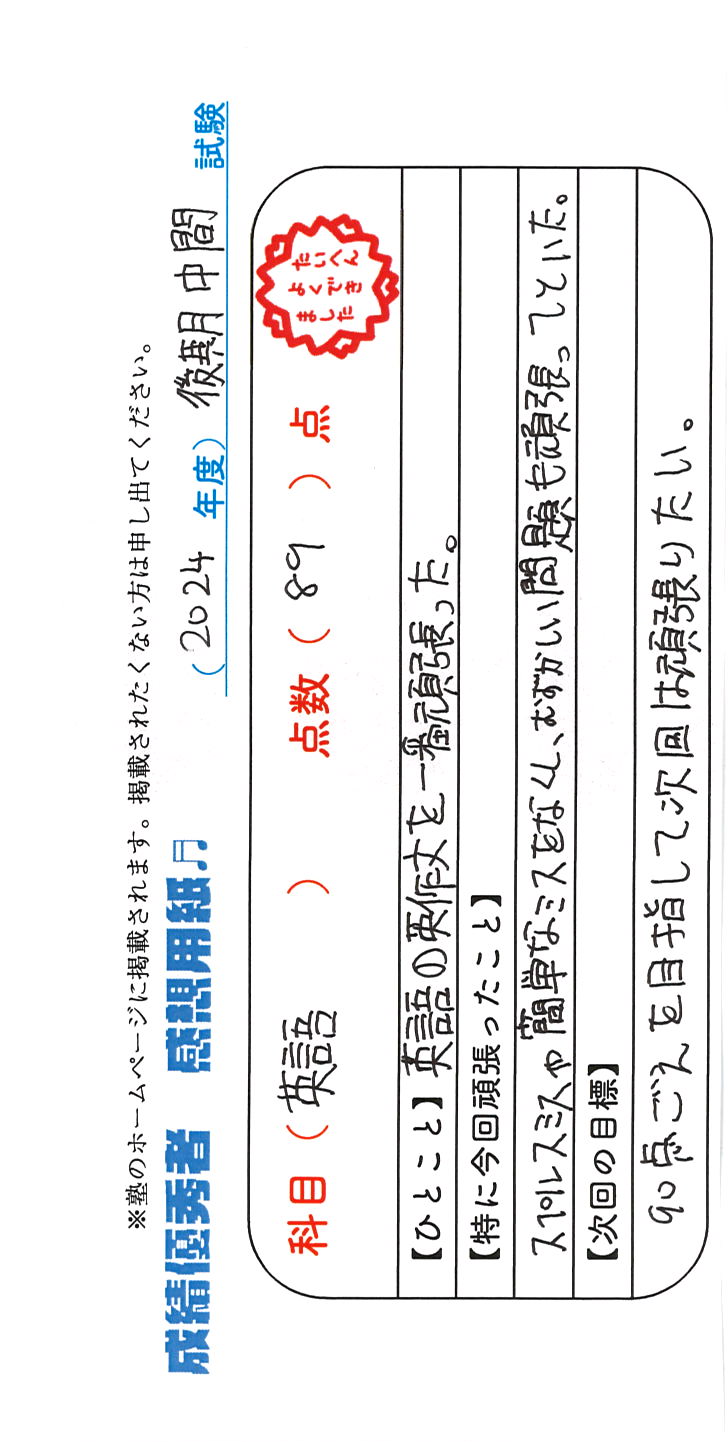 ※塾のホームページに掲載されます。掲載されたくない方は申し出てください。
成績優秀者 感想用紙♬
(2024 年度) 後期中間 試験
科目(英語) 点数(89)点
たいへん
よくでき
ました
【ひとこと】英語の英作文を一番頑張った。
【特に今回頑張ったこと】
スペルスミスや簡単なミスをなくし、むずかしい問題も頑張ってといた。
【次回の目標】
90点ごえを目指して次回は頑張りたい。